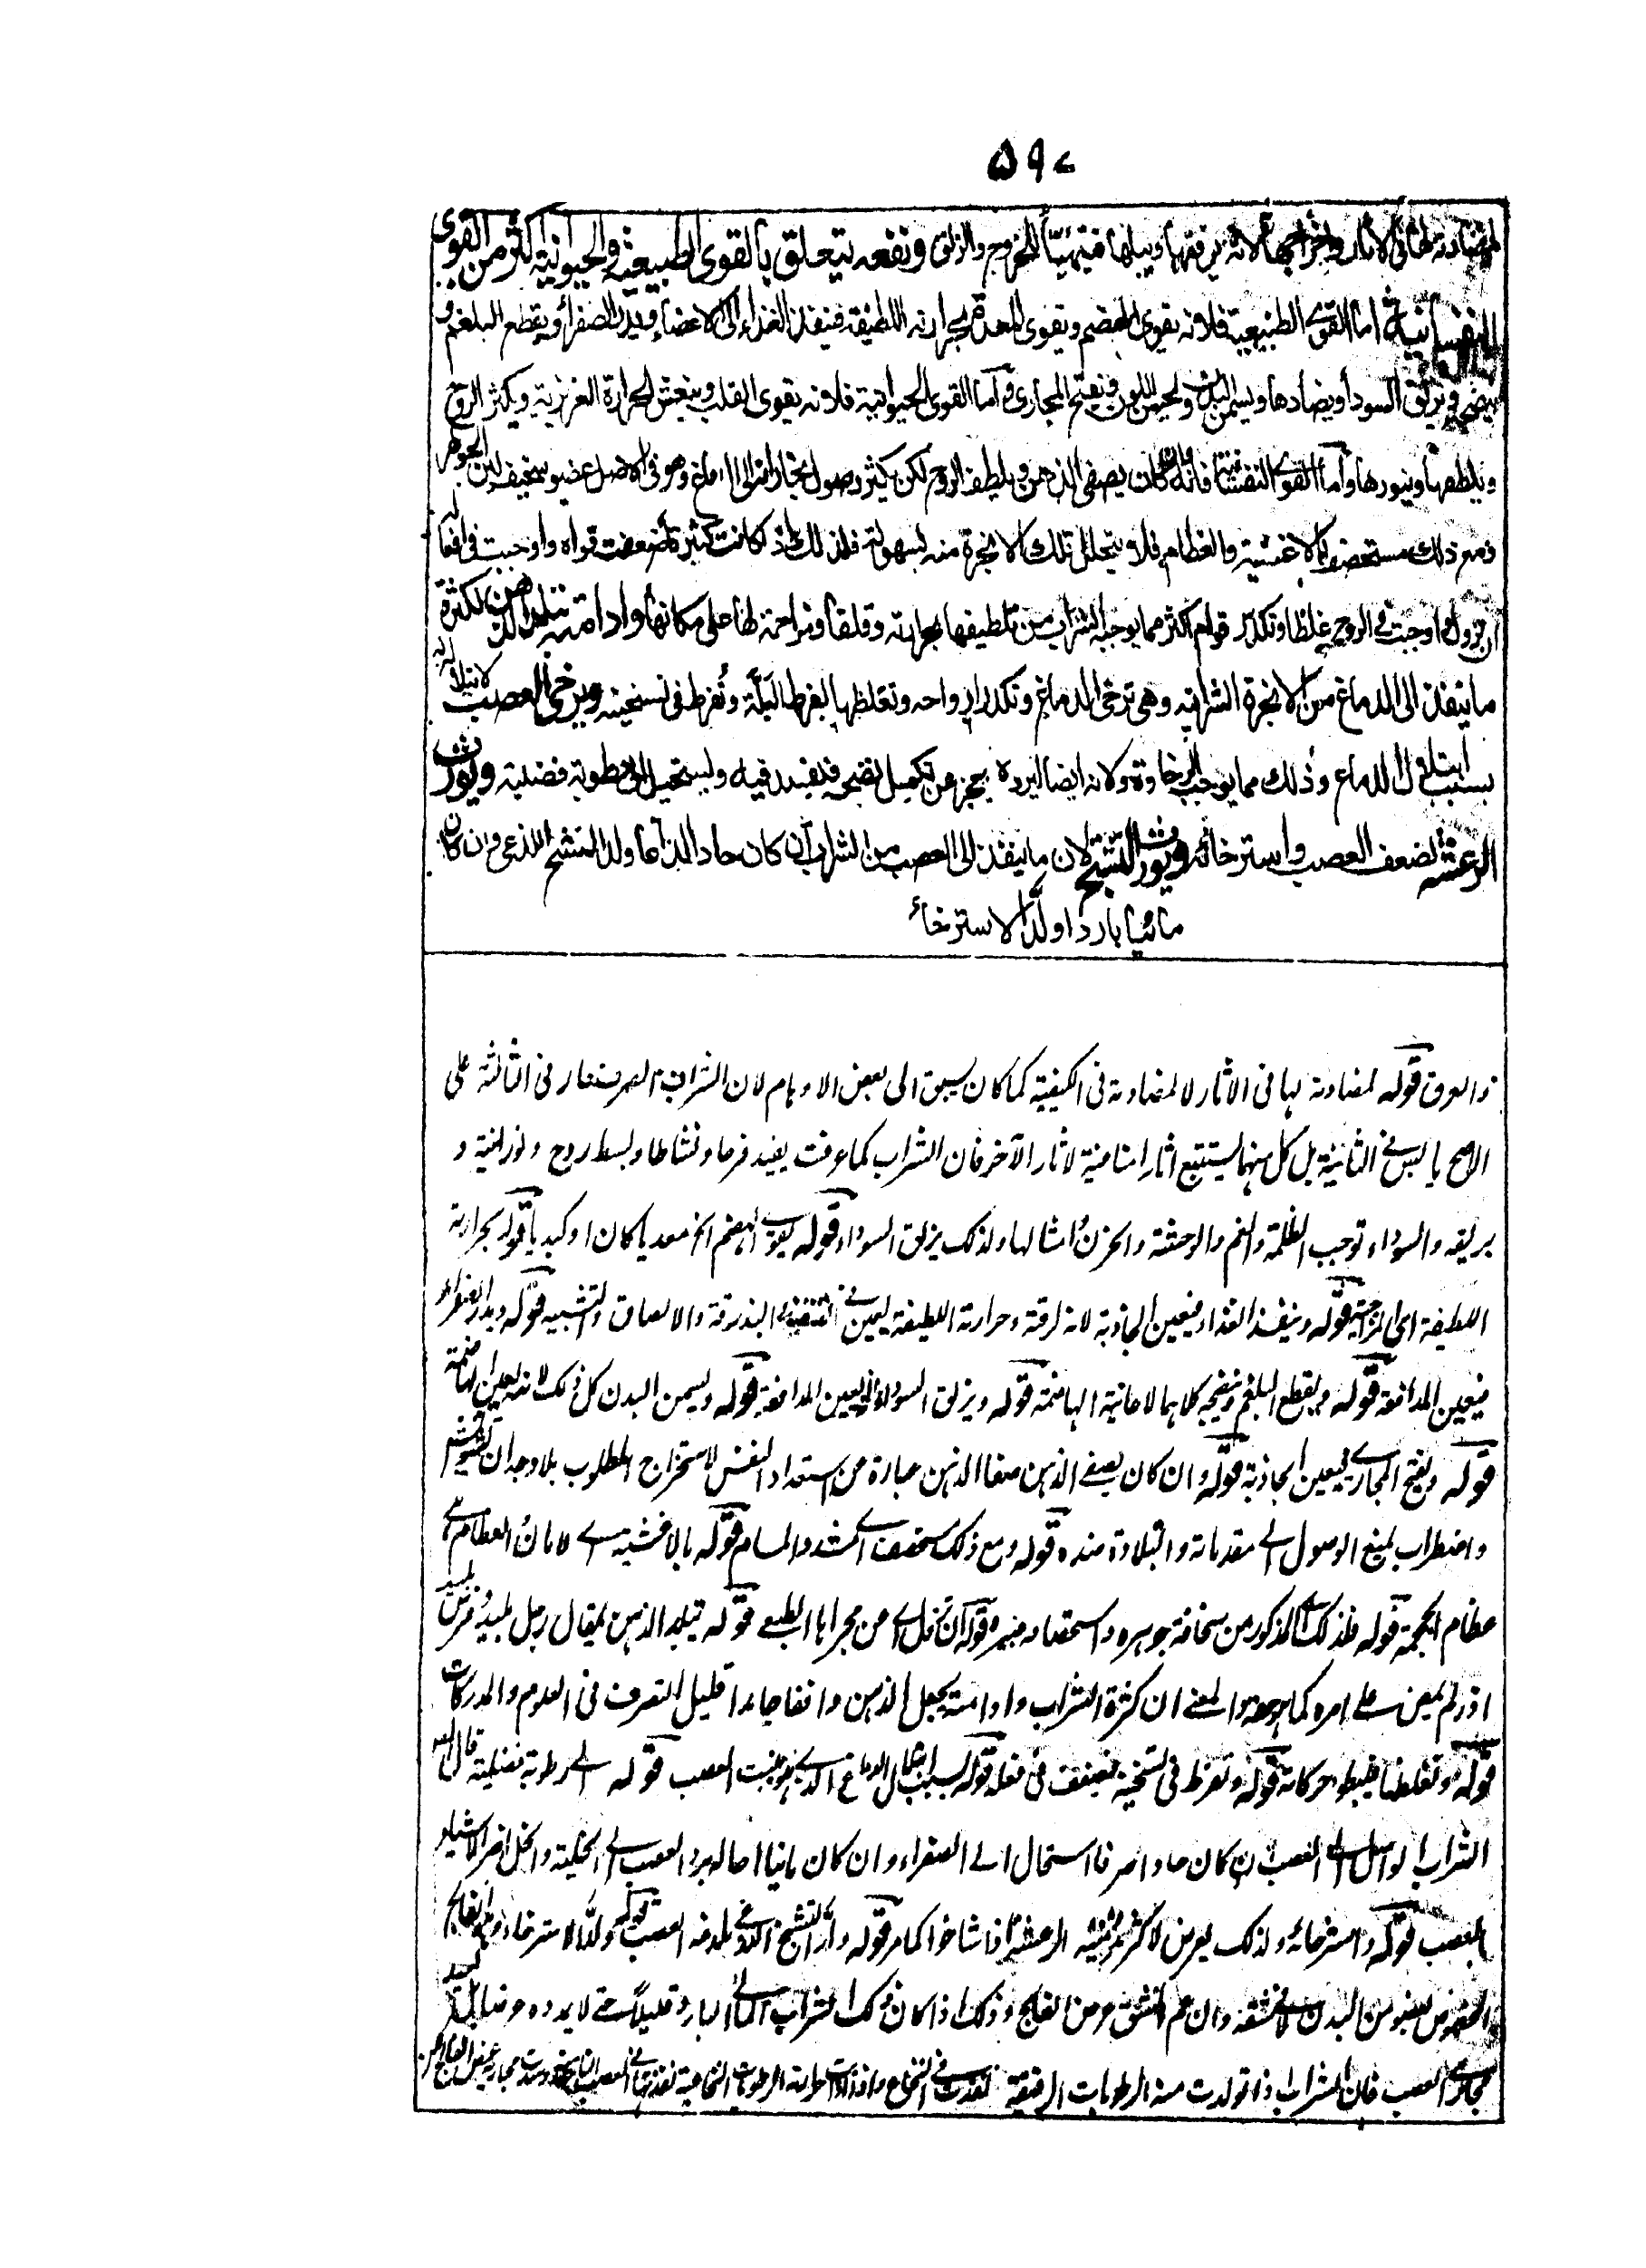 ۵۹۷
لمضادته لها فى الاثار واخراجها لانه يرققها ويبلها فيتهيأ للخروج والزلق ونفعه يتعلق بالقوى الطبيعية والحيوانية اكثر من القوى
النفسانية اما القوى الطبيعية فلانه يقوى الهضم ويقوى المعدة بحرارته اللطيفة فينفذ الغذاء الى الاعضاء ويدر الصفراء ويقطع البلغم و
ينضجه ويزلق السوداء ويضادها ويسمن البدن ويحسن اللون ويفتح المجارى واما القوى الحيوانية فلانه يقوى القلب وينعش الحرارة الغريزية ويكثر الروح
ويلطفها وينورها واما القوى النفسانية فانه وان كان يصفى الذهن ويلطف الروح لكن يكثر وصول بخاراته الى الدماغ وهو فى الاصل عضو سخيف لين الجوهر
ومع ذلك مستحصف بالاغشية والعظام فلا يتحلل تلك الابخرة منه بسهولة فلذلك اذا كانت كثيرة اضعفت قواه واوجبت فى افعاله
ان تزول واوجبت فى الروح غلظا وتكدر قوام اكثر مما يوجبه الشراب من تلطيفها بحرارته وقلقا ومزاحمة لها على مكانها وادامته تبلد الذهن لكثرة
ما ينفذ الى الدماغ من الابخرة الشرابية وهى ترخى الدماغ وتكدر ارواحه وتغلظها لفرط البلة وتفرط فى تسخينه ويرخى العصب لابتلاله
بسبب ابتلال الدماغ وذلك مما يوجب الرخاوة ولانه ايضا لبرده يعجز عن تكميل نضجه فيفسد فيه ويستحيل الى رطوبة فضلية ويورث
الرعشة لضعف العصب واسترخائه ويورث التشنج لان ما ينفذ الى العصب من الشراب ان كان حادا لذاعا ولد التشنج اللذعى وان كان
مائيا باردا ولد الاسترخاء
والعرق قوله لمضادته لها فى الاثار لا لمضادته فى الكيفية كما كان يسبق الى بعض الاوهام لان الشراب الصرف حار فى الثالثة على
الاصح يابس فى الثانية بل كل منهما يستتبع اثارا منافية لاثار الآخر فان الشراب كما عرفت يفيد فرحا ونشاطا وبسط روح ونورانية و
بريقه والسوداء توجب الظلمة والغم والوحشة والحزن وامثالها ولذلك يزلق السوداء قوله يقوى الهضم الخ معديا كان او كبديا قوله بحرارته
اللطيفة اى المزاجية قوله وينفذ الغذاء فيعين الجاذبة لانه لرقته وحرارته اللطيفة يعين فى التنفيذ البذرقة والالصاق والتشبيه قوله ويدر الصفراء
فيعين الدافعة قوله ويقطع البلغم وينضجه كلاهما لاعانة الهاضمة قوله ويزلق السوداء فيعين الدافعة قوله ويسمن البدن كل ذلك لانه يعين الهاضمة
قوله ويفتح المجارى فيعين الجاذبة قوله وان كان يصفى الذهن صفاء الذهن عبارة من استعداد النفس لاستخراج المطلوب بلا وجدان تشويش
واضطراب يمنع الوصول الى مقدماته والبلادة ضده قوله ومع ذلك مستحصف اى منسد المسام قوله بالاغشية اى الامان والعظام اى
عظام الجمجمة قوله فلذلك اى المذكور من سخافة جوهره واستحصاف غيره قوله ان تزول اى من مجراها الطبيعى قوله تبلد الذهن يقال رجل بليد وفرس بليد
اذا لم يمض على امره كما هو حقه والمعنى ان كثرة الشراب وادامته يجعل الذهن واقفا جامدا قليل التصرف فى العلوم والمدركات
قوله وتغلظها فيبطؤ حركاته قوله وتفرط فى تسخينه فيضعف فى فعله قوله بسبب ابتلال الدماغ الذى هو منبت العصب قوله الى رطوبة فضلية قال
الشراب الواصل الى العصب ان كان حادا صرفا استحال الى الصفراء وان كان مائيا احاله برد العصب الى الخلية والخل اضر الاشياء
بالعصب قوله واسترخائه ولذلك يعرض لاكثر الرعشة اذا شاخوا كما مر قوله ولد التشنج اللذعى للذعه العصب قوله ولد الاسترخاء وهو الفالج
المخصوص بعضو من البدن لا بشقه وان عم الشق عرض الفالج وذلك اذا كان ذلك الشراب المائى البارد قليلا حتى لا يمدده عرضا بل يسد
مجارى العصب فان الشراب اذا تولدت منه الرطوبات الرقيقة نفذت فى النخاع